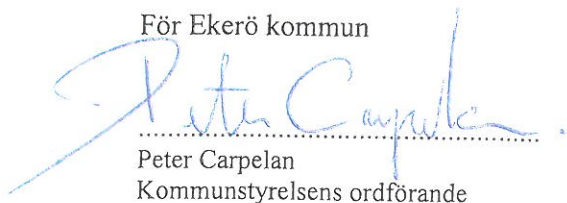 För Ekerö kommun
Peter Carpelan
Peter Carpelan
Kommunstyrelsens ordförande